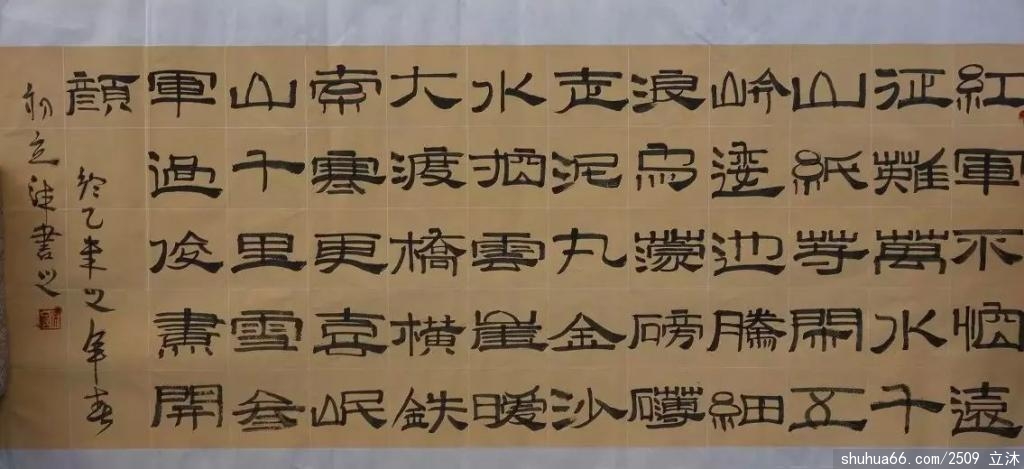 紅軍不怕遠
征難萬水千
山紙等閒五
岭逶迆騰細
浪烏濛磅礴
走泥丸金沙
水拍雲崖暖
大渡橋橫鉄
索寒更喜岷
山千里雪叁
軍過後盡開
顔 於乙未之年春
初立沐書之
shuhua66.com/2509 立沐